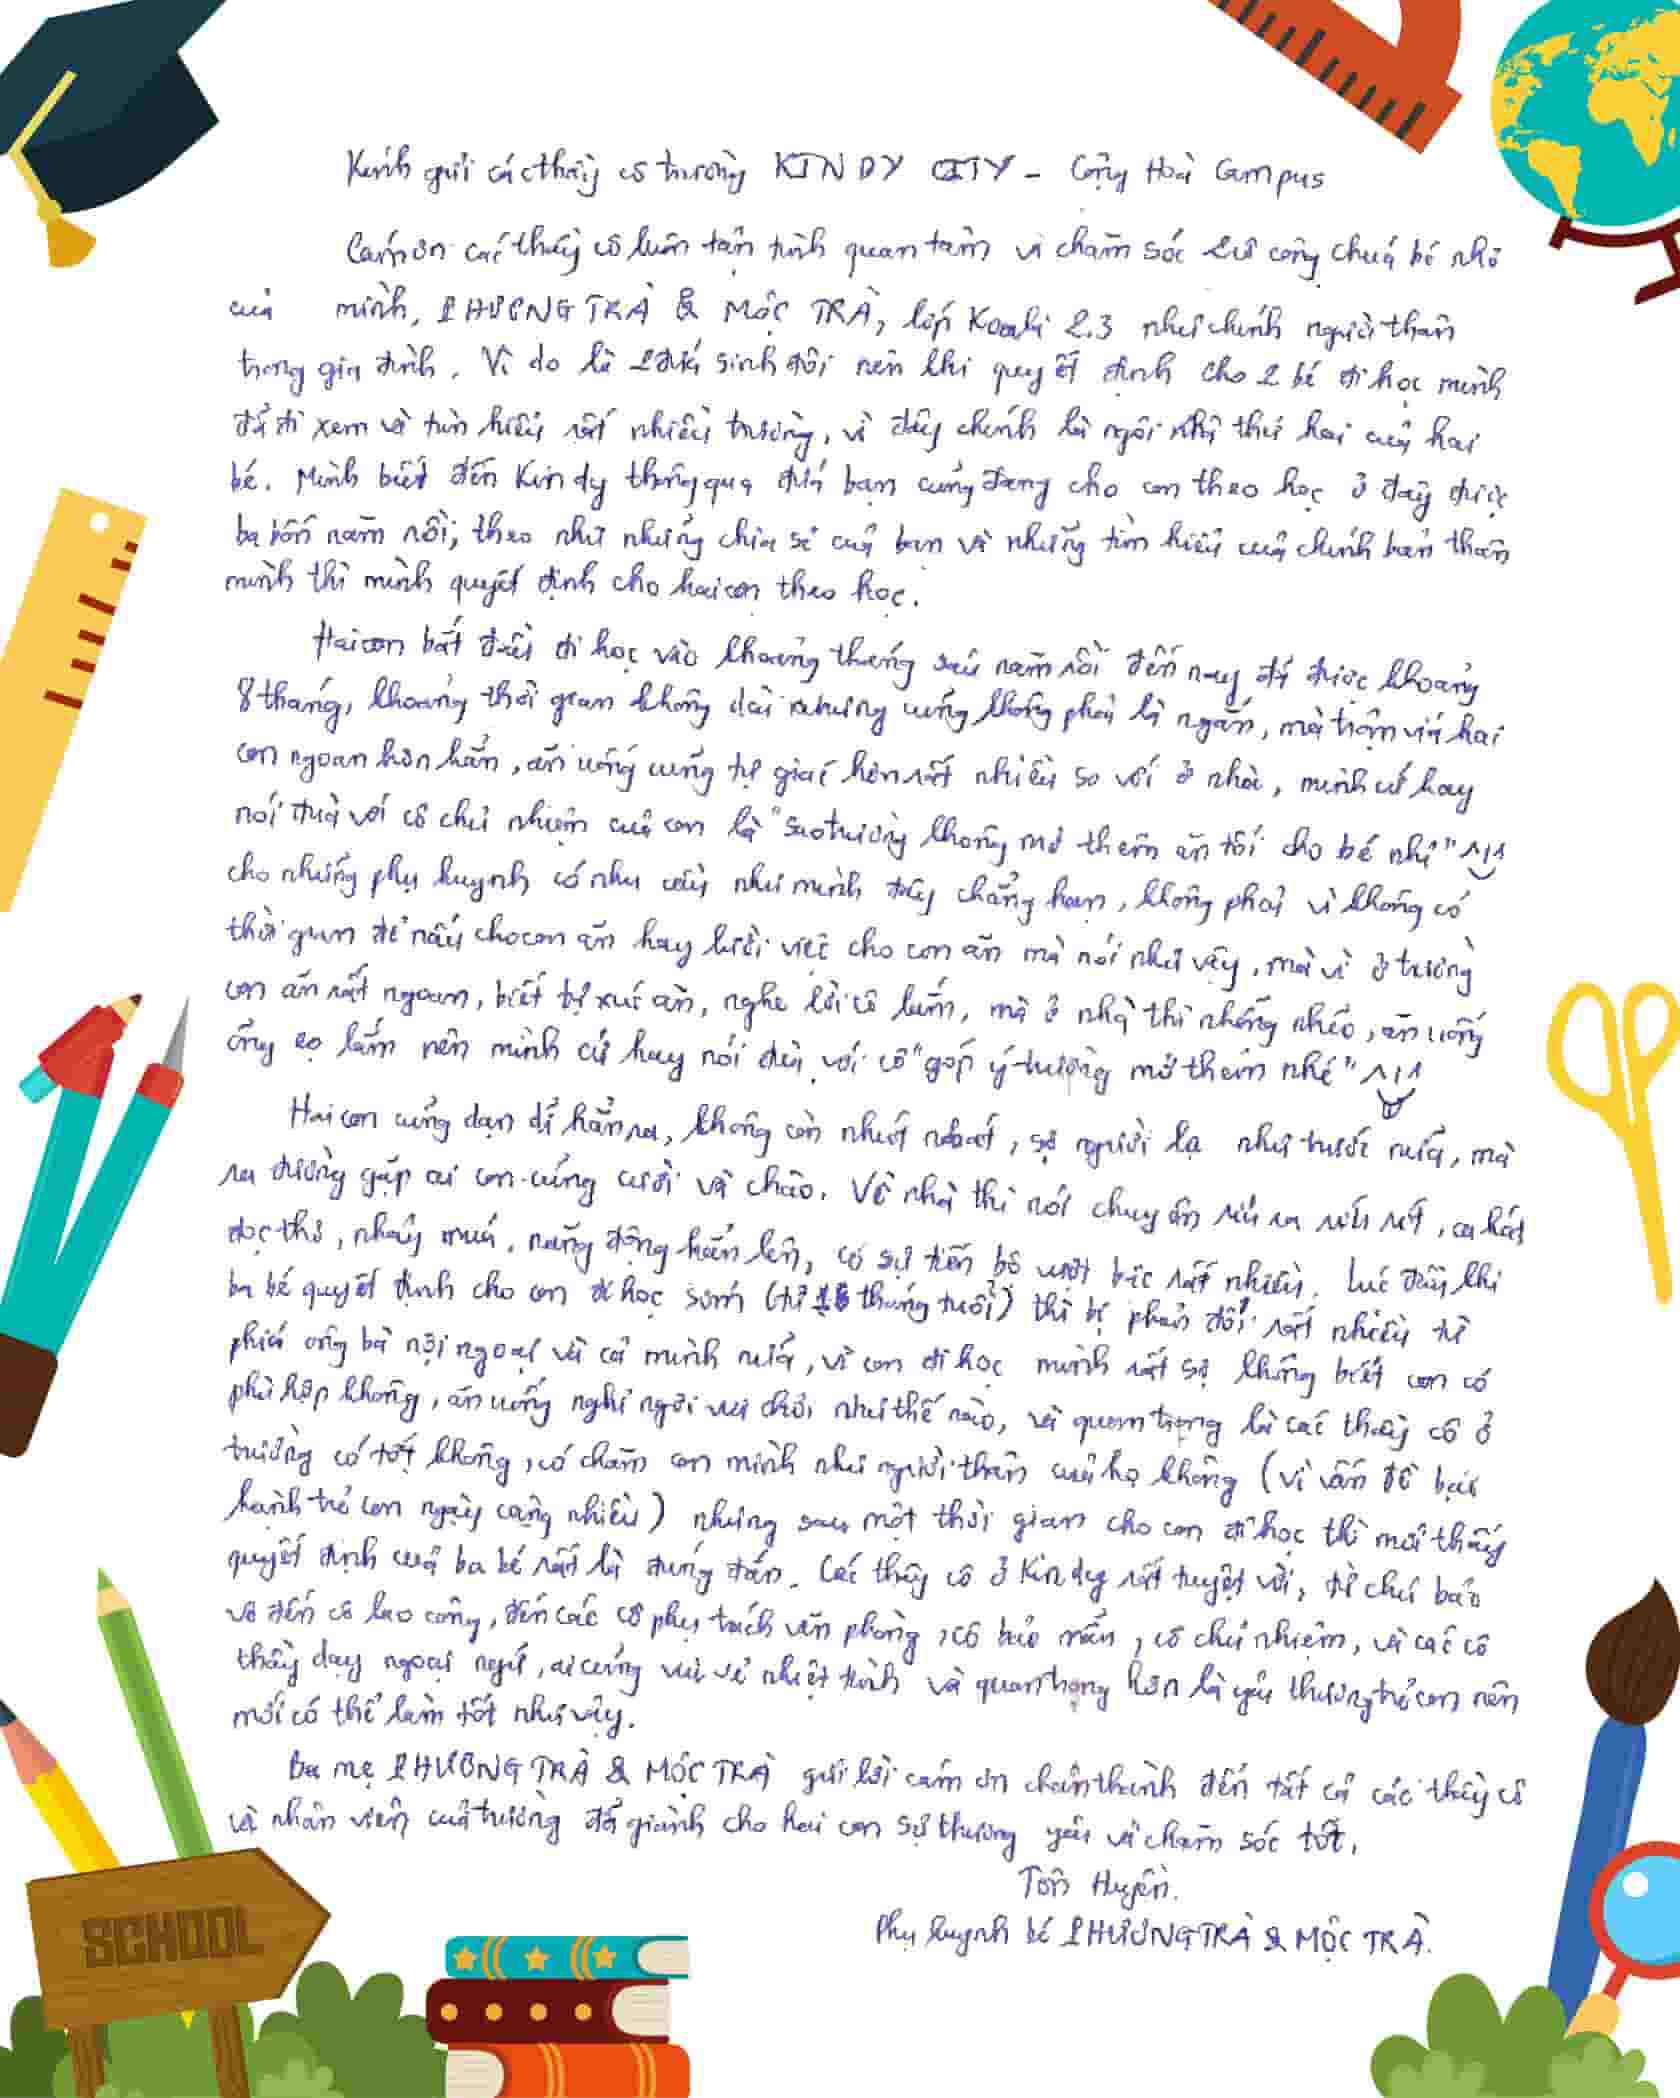 Kính gửi các thầy cô trường KINDY CITY - Cộng Hoà Campus
Cảm ơn các thầy cô luôn tận tình quan tâm và chăm sóc 2 cô công chúa bé nhỏ
của mình, PHƯƠNG TRÀ & MỘC TRÀ, lớp Koala 2.3 như chính người thân
trong gia đình. Vì do là 2 đứa sinh đôi nên khi quyết định cho 2 bé đi học mình
đã đi xem và tìm hiểu rất nhiều trường, vì đây chính là ngôi nhà thứ hai của hai
bé. Mình biết đến Kindy thông qua đứa bạn cũng đang cho con theo học ở đây được
ba bốn năm rồi, theo như những chia sẻ của bạn và những tìm hiểu của chính bản thân
mình thì mình quyết định cho hai con theo học.
Hai con bắt đầu đi học vào khoảng tháng sáu năm rồi đến nay đã được khoảng
8 tháng, khoảng thời gian không dài nhưng cũng không phải là ngắn, mà trộm vía hai
con ngoan hơn hẳn, ăn uống cũng tự giác hơn rất nhiều so với ở nhà, mình cứ hay
nói đùa với cô chủ nhiệm của con là "sao trường không mở thêm ăn tối cho bé nhỉ"
cho những phụ huynh có nhu cầu như mình đây chẳng hạn, không phải vì không có
thời gian để nấu cho con ăn hay lười việc cho con ăn mà nói như vậy, mà vì ở trường
con ăn rất ngoan, biết tự xúc ăn, nghe lời cô lắm, mà ở nhà thì nhõng nhẽo, ăn uống
õng ẹo lắm nên mình cứ hay nói đùa với cô "góp ý trường mở thêm nhé"
Hai con cũng dạn dĩ hẳn ra, không còn nhút nhát, sợ người lạ như trước nữa, mà
ra đường gặp ai con cũng cười và chào. Về nhà thì nói chuyện ríu ra ríu rít, ca hát
đọc thơ, nhảy múa, năng động hẳn lên, có sự tiến bộ vượt bậc rất nhiều. Lúc đầu khi
ba bé quyết định cho con đi học sớm (từ 18 tháng tuổi) thì bị phản đối rất nhiều từ
phía ông bà nội ngoại và cả mình nữa, vì con đi học mình rất sợ không biết con có
phù hợp không, ăn uống nghỉ ngơi vui chơi như thế nào, và quan trọng là các thầy cô ở
trường có tốt không, có chăm con mình như người thân của họ không (vì vấn đề bạo
hành trẻ con ngày càng nhiều) nhưng sau một thời gian cho con đi học thì mới thấy
quyết định của ba bé rất là đúng đắn. Các thầy cô ở Kindy rất tuyệt vời, từ chú bảo
vệ đến cô lao công, đến các cô phụ trách văn phòng, cô bảo mẫu, cô chủ nhiệm, và các cô
thầy dạy ngoại ngữ, ai cũng vui vẻ nhiệt tình và quan trọng hơn là yêu thương trẻ con nên
mới có thể làm tốt như vậy.
Ba mẹ PHƯƠNG TRÀ & MỘC TRÀ gửi lời cảm ơn chân thành đến tất cả các thầy cô
và nhân viên của trường đã giành cho hai con sự thương yêu và chăm sóc tốt.
Tôn Huyền.
Phụ huynh bé PHƯƠNG TRÀ & MỘC TRÀ.
SCHOOL